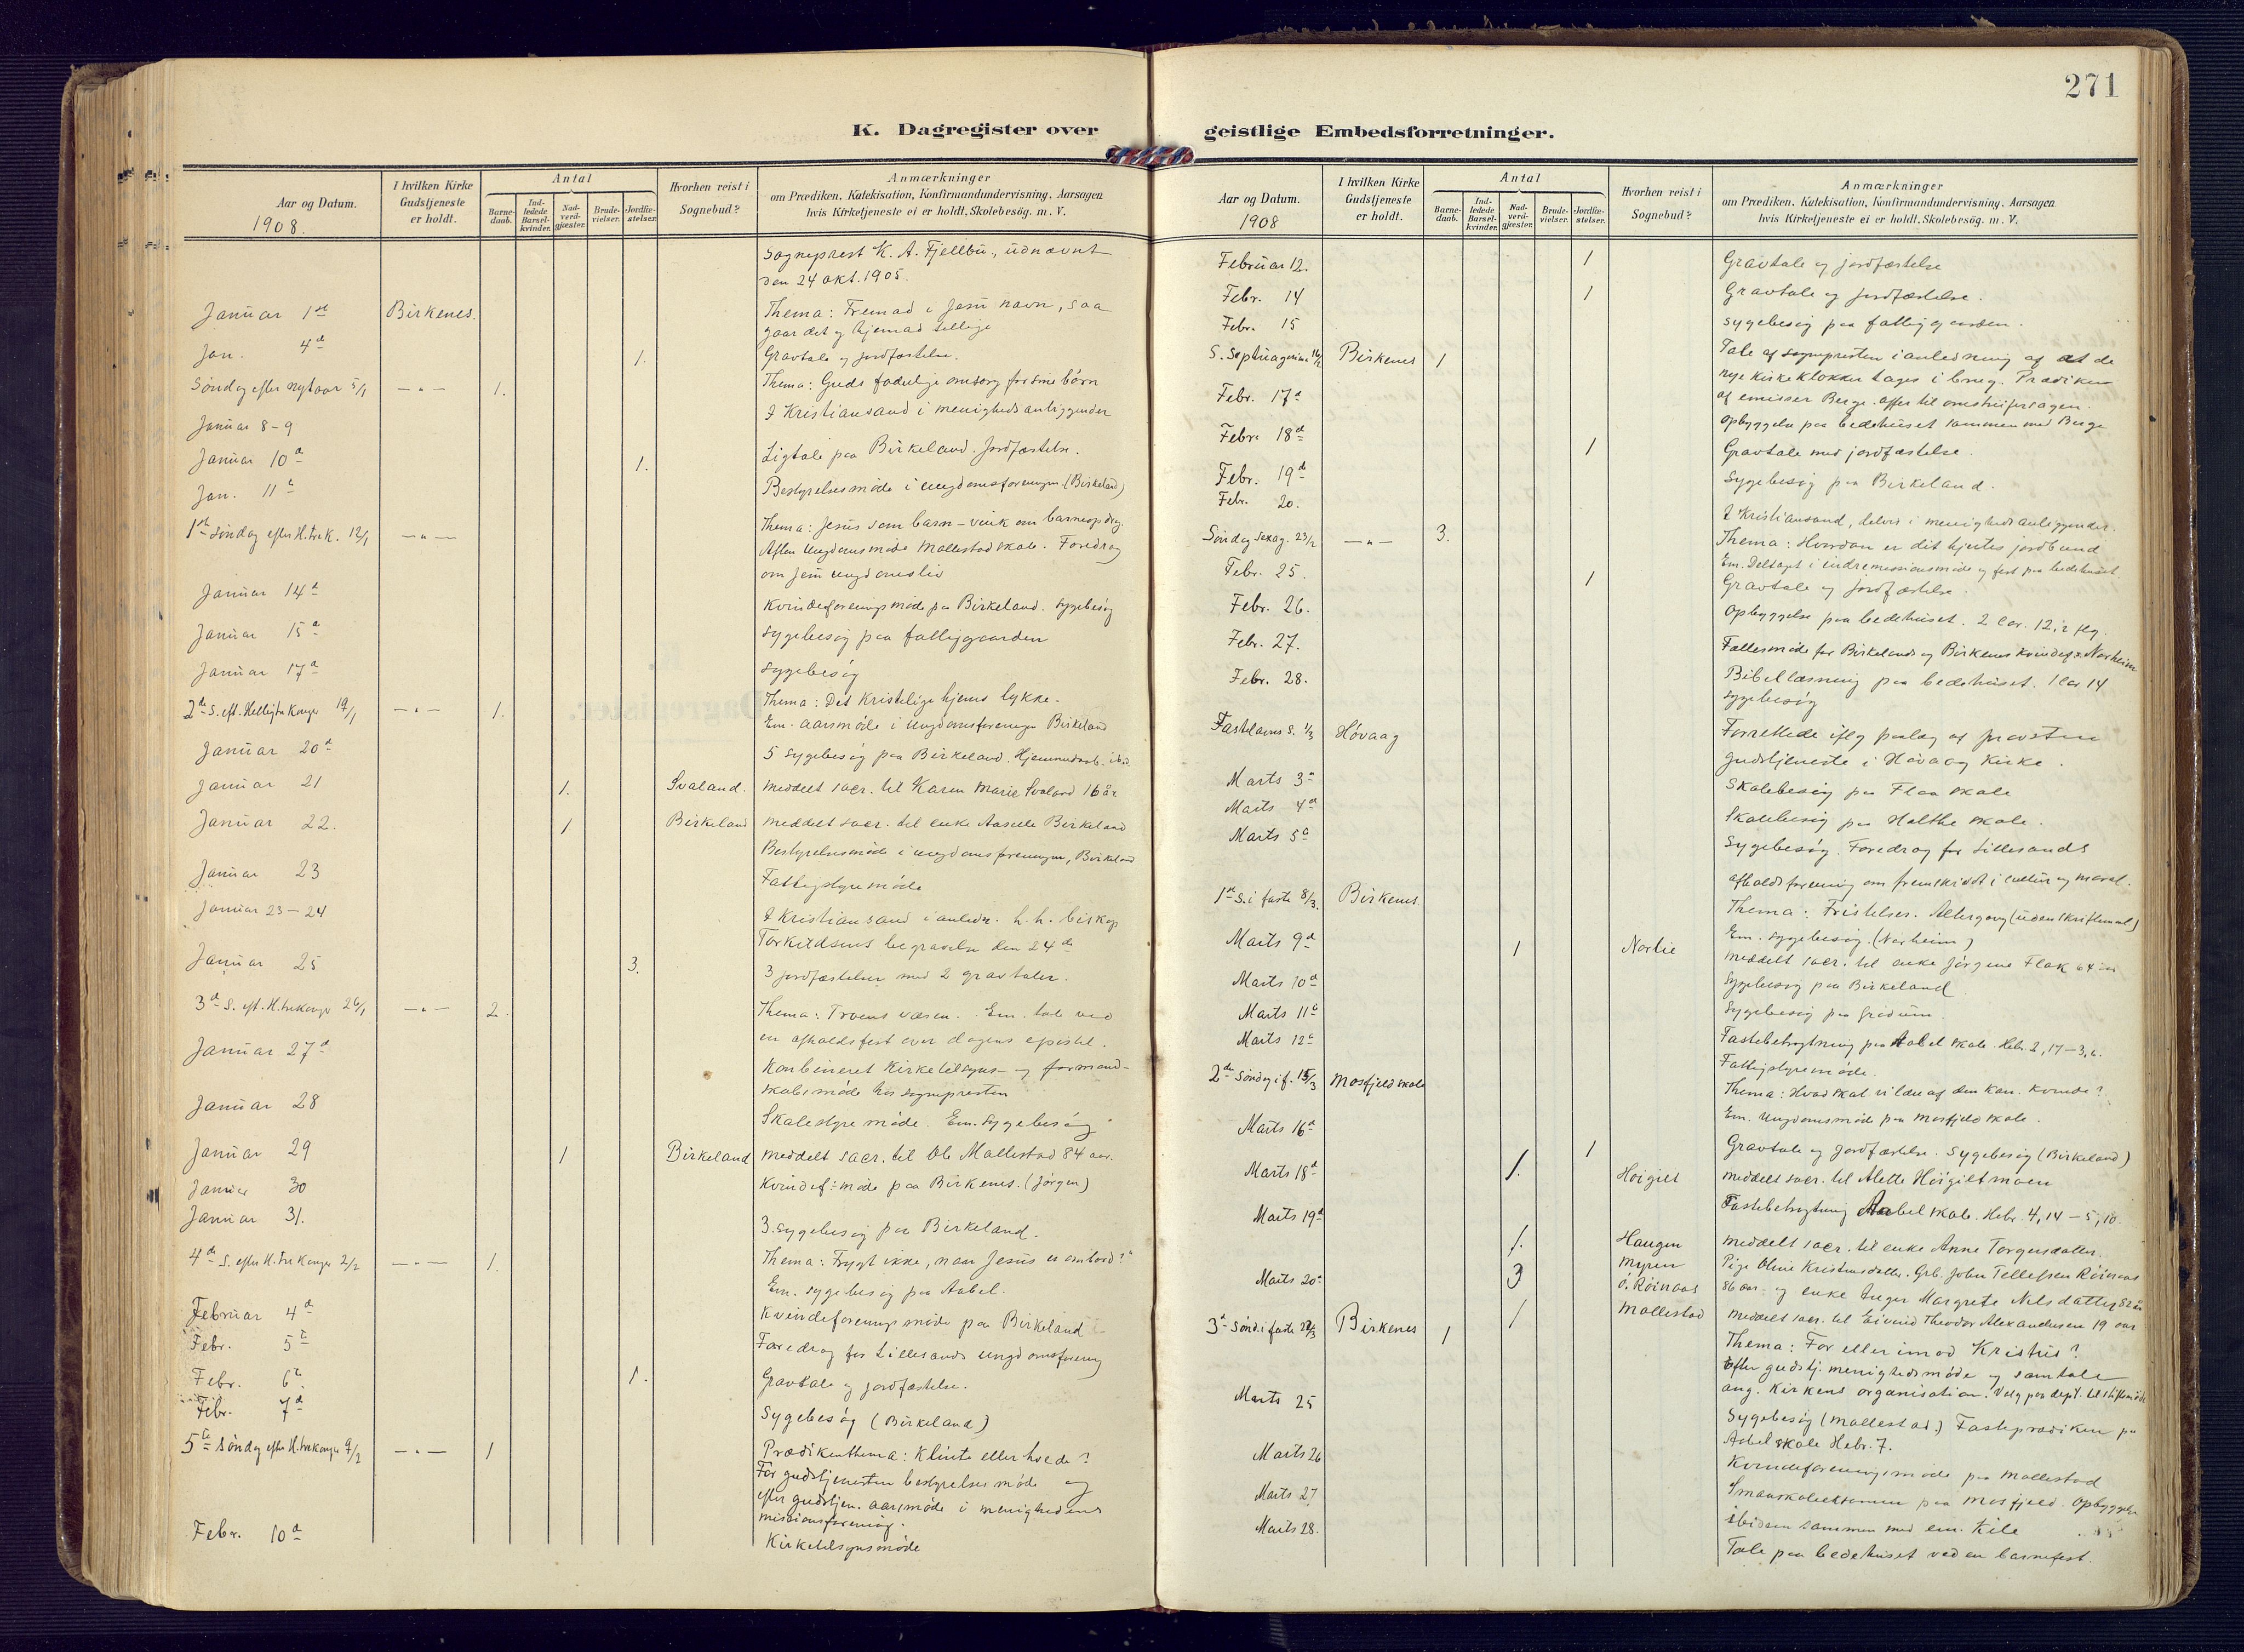 271
K. Dagregister over
geistlige Embedsforretninger.
Aar og Datum.
1908.
I hvilken Kirke Gudstjeneste er holdt.
Antal
Barne-daab.
Ind-ledede Barsel-kvinder.
Nad-verd-gjæster.
Brude-vielser.
Jordfæ-stelser.
Hvorhen reist i Sognebud?
Anmærkninger
om Prædiken, Katekisation, Konfirmandundervisning, Aarsagen
hvis Kirketjeneste ei er holdt, Skolebesøg. m. V.
Sogneprest K. A. Fjellbu, udnævnt
den 24 okt. 1905.
Januar 1st Birkenes. Thema: Fremad i Jesu navn, saa
gaar det og hjemad tillige
Jan. 4d 1. Gravtale og jordfæstelse.
Søndag efter nytaar 5/1 — " — 1. Thema: Guds faderlige omsorg for sine børn
Januar 8-9 I Kristiansand i menighedsanliggender
Januar 10d 1. Ligtale paa Birkeland. Jordfæstelse.
Jan. 11t Bestyrelsesmøde i ungdomsforeningen (Birkeland)
1st Søndag efter H. trek. 12/1 — " — Thema: Jesus som barn – vink om barneopdrag.
Aften Ungdomsmøde Mollestad skole. Foredrag
om Jesu ungdomsliv
Januar 14d Kvindeforeningsmøde paa Birkeland. Sygebesøg
Januar 15d Sygebesøg paa fattiggaarden
Januar 17d Sygebesøg
2den S. eft. Helligtrekonger 19/1 — " — 1. Thema: Det Kristelige hjems lykke.
Em. aarsmøde i Ungdomsforeningen Birkeland
Januar 20d 5 sygebesøg paa Birkeland.
Januar 21 1. Svaland. Meddelt sacr. til Karen Marie Svaland 16 år
Januar 22. 1 Birkeland Meddelt sacr. til enke Birkeland
Bestyrelsesmøde i ungdomsforeningen, Birkeland
Januar 23 Fattigstyremøde
Januar 23–24 I Kristiansand i anledn. h. h. biskop
Torkildsens begravelse den 24de
Januar 25 3. 3 jordfæstelser med 2 gravtaler.
3d S. eft. H. trekonger 26/1 — " — 2. Thema: Troens væsen. Em. tale ved
en afholdsfest over dagens epistel.
Januar 27d Konbineret Kirketilsyns- og formand-
skabsmøde hos sognepresten
Januar 28 Skolestyremøde. Em. Sygebesøg
Januar 29 1 Birkeland Meddelt sacr. til Ole Mollestad 84 aar.
Januar 30 Kvindef: møde paa Birkenes. (Jørgen)
Januar 31. 3 sygebesøg paa Birkeland.
4de S. efter H. trekonger 2/2 — " — 1. Thema: Frygt ikke, naar Jesus er ombord!
Em. sygebesøg paa Aabel.
Februar 4d Kvindeforeningsmøde paa Birkeland
Febr. 5t Foredrag for Lillesands ungdomsforening
Febr. 6t 1. Gravtale og jordfæstelse.
Febr. 7d Sygebesøg (Birkeland)
5te Søndag efter H. trekonger 9/2 — " — 1 Prædikenthema: Klinte eller hvede?
Før gudstjenesten bestyrelsesmøde og
efter gudstjen. aarsmøde i menighedens
missionsforening.
Febr. 10d Kirketilsynsmøde
Aar og Datum.
1908
I hvilken Kirke Gudstjeneste er holdt.
Antal
Barne-daab.
Ind-ledede Barsel-kvinder.
Nad-verd-gjæster.
Brude-vielser.
Jordfæ-stelser.
Hvorhen reist i Sognebud?
Anmærkninger
om Prædiken, Katekisation, Konfirmandundervisning, Aarsagen
hvis Kirketjeneste ei er holdt, Skolebesøg. m. V.
Februar 12. 1 Gravtale og jordfæstelse
Febr. 14 1 Gravtale og jordfæstelse.
Febr. 15 Sygebesøg paa fattiggaarden.
S. Septuagesima 16/2 Birkenes 1 Tale af sognepresten i anledning af at de
nye kirkeklokker tages i brug. Prædiken
af emissær Berge. offer til
Febr. 17d Opbyggelse paa bedehuset sammen med Berge
Febr. 18d 1 Gravtale med jordfæstelse.
Febr. 19d Sygebesøg paa Birkeland.
Febr. 20. I Kristiansand, delvis i menighedsanliggender.
Søndag Sexag. 23/2 — " — 3. Thema: Hvordan er dit hjertes jordbund
Em. Deltaget i indremissionsmøde og fest paa bedehuset
Febr. 25. 1 Gravtale og jordfæstelse.
Febr. 26. Opbyggelse paa bedehuset. 2 Cor. 12, 2 flg.
Febr. 27. Fællesmøde for Birkelands og Birkenes kvindef: Norheim
Febr. 28. Bibellæsning paa bedehuset. 1 Cor 14
Sygebesøg
Fastelavns S. 1/3 Høvaag Forrettede iflg paalæg af provsten
gudstjeneste i Høvaag Kirke.
Marts 3d Skolebesøg paa Flaa skole
Marts 4d Skolebesøg paa Holthe skole.
Marts 5t Sygebesøg. Foredrag for Lillesands
afholdsforening om fremskridt i cultur og moral.
1st S. i faste 8/3. Birkenes. Thema: Fristelser. Altergang (uden skriftemaal)
Em. sygebesøg. (Norheim)
Marts 9d 1 Norlie Meddelt sacr. til enke Jørgine Flak 64 aar
Marts 10d Sygebesøg paa Birkeland
Marts 11t Sygebesøg paa
Marts 12t Fastebetragtning paa Aabel skole. Hebr. 2, 17–3, 6.
Fattigstyremøde.
2den Søndag i f. 15/3 Mosfjeld skole Thema: Hvad skal vi lære af den kan. kvinde?
Em. Ungdomsmøde paa Mosfjeld skole.
Marts 16d 1 Gravtale og jordfæstelse. Sygebesøg (Birkeland)
Marts 18d 1. Høigilt Meddelt sacr. til Alette Høigiltmoen
Marts 19d Fastebetragtning Aabel skole. Hebr. 4, 14 – 5, 10.
1. Haugen Meddelt sacr. til enke Anne Torgersdatter.
Marts 20d 3 Myren Ø. Røinaas Pige Oline Kristensdatter. Grb. John Tellefsen Røinaas
86 aar og enke Inger Margrete Nilsdatter 82 år
1 Mollestad Meddelt sacr. til Eivind Theodor Alexandersen 19 aar
3d Sønd. i faste 22/3 Birkenes 1 Thema: For eller imod Kristus?
Efter gudstj. menighedsmøde og samtale
ang. Kirkens organisation. Valg paa dept. til stiftsmøde
Marts 25 Sygebesøg (Mollestad.) Fasteprædiken paa
Aabel skole Hebr. 7.
Marts 26 Kvindeforeningsmøde paa Mollestad
Marts 27 Smaaskoleeksamen paa Mosfjeld. Opbyggelse
ibidem sammen med em. Kile
Marts 28. Tale paa bedehuset ved en barnefest.